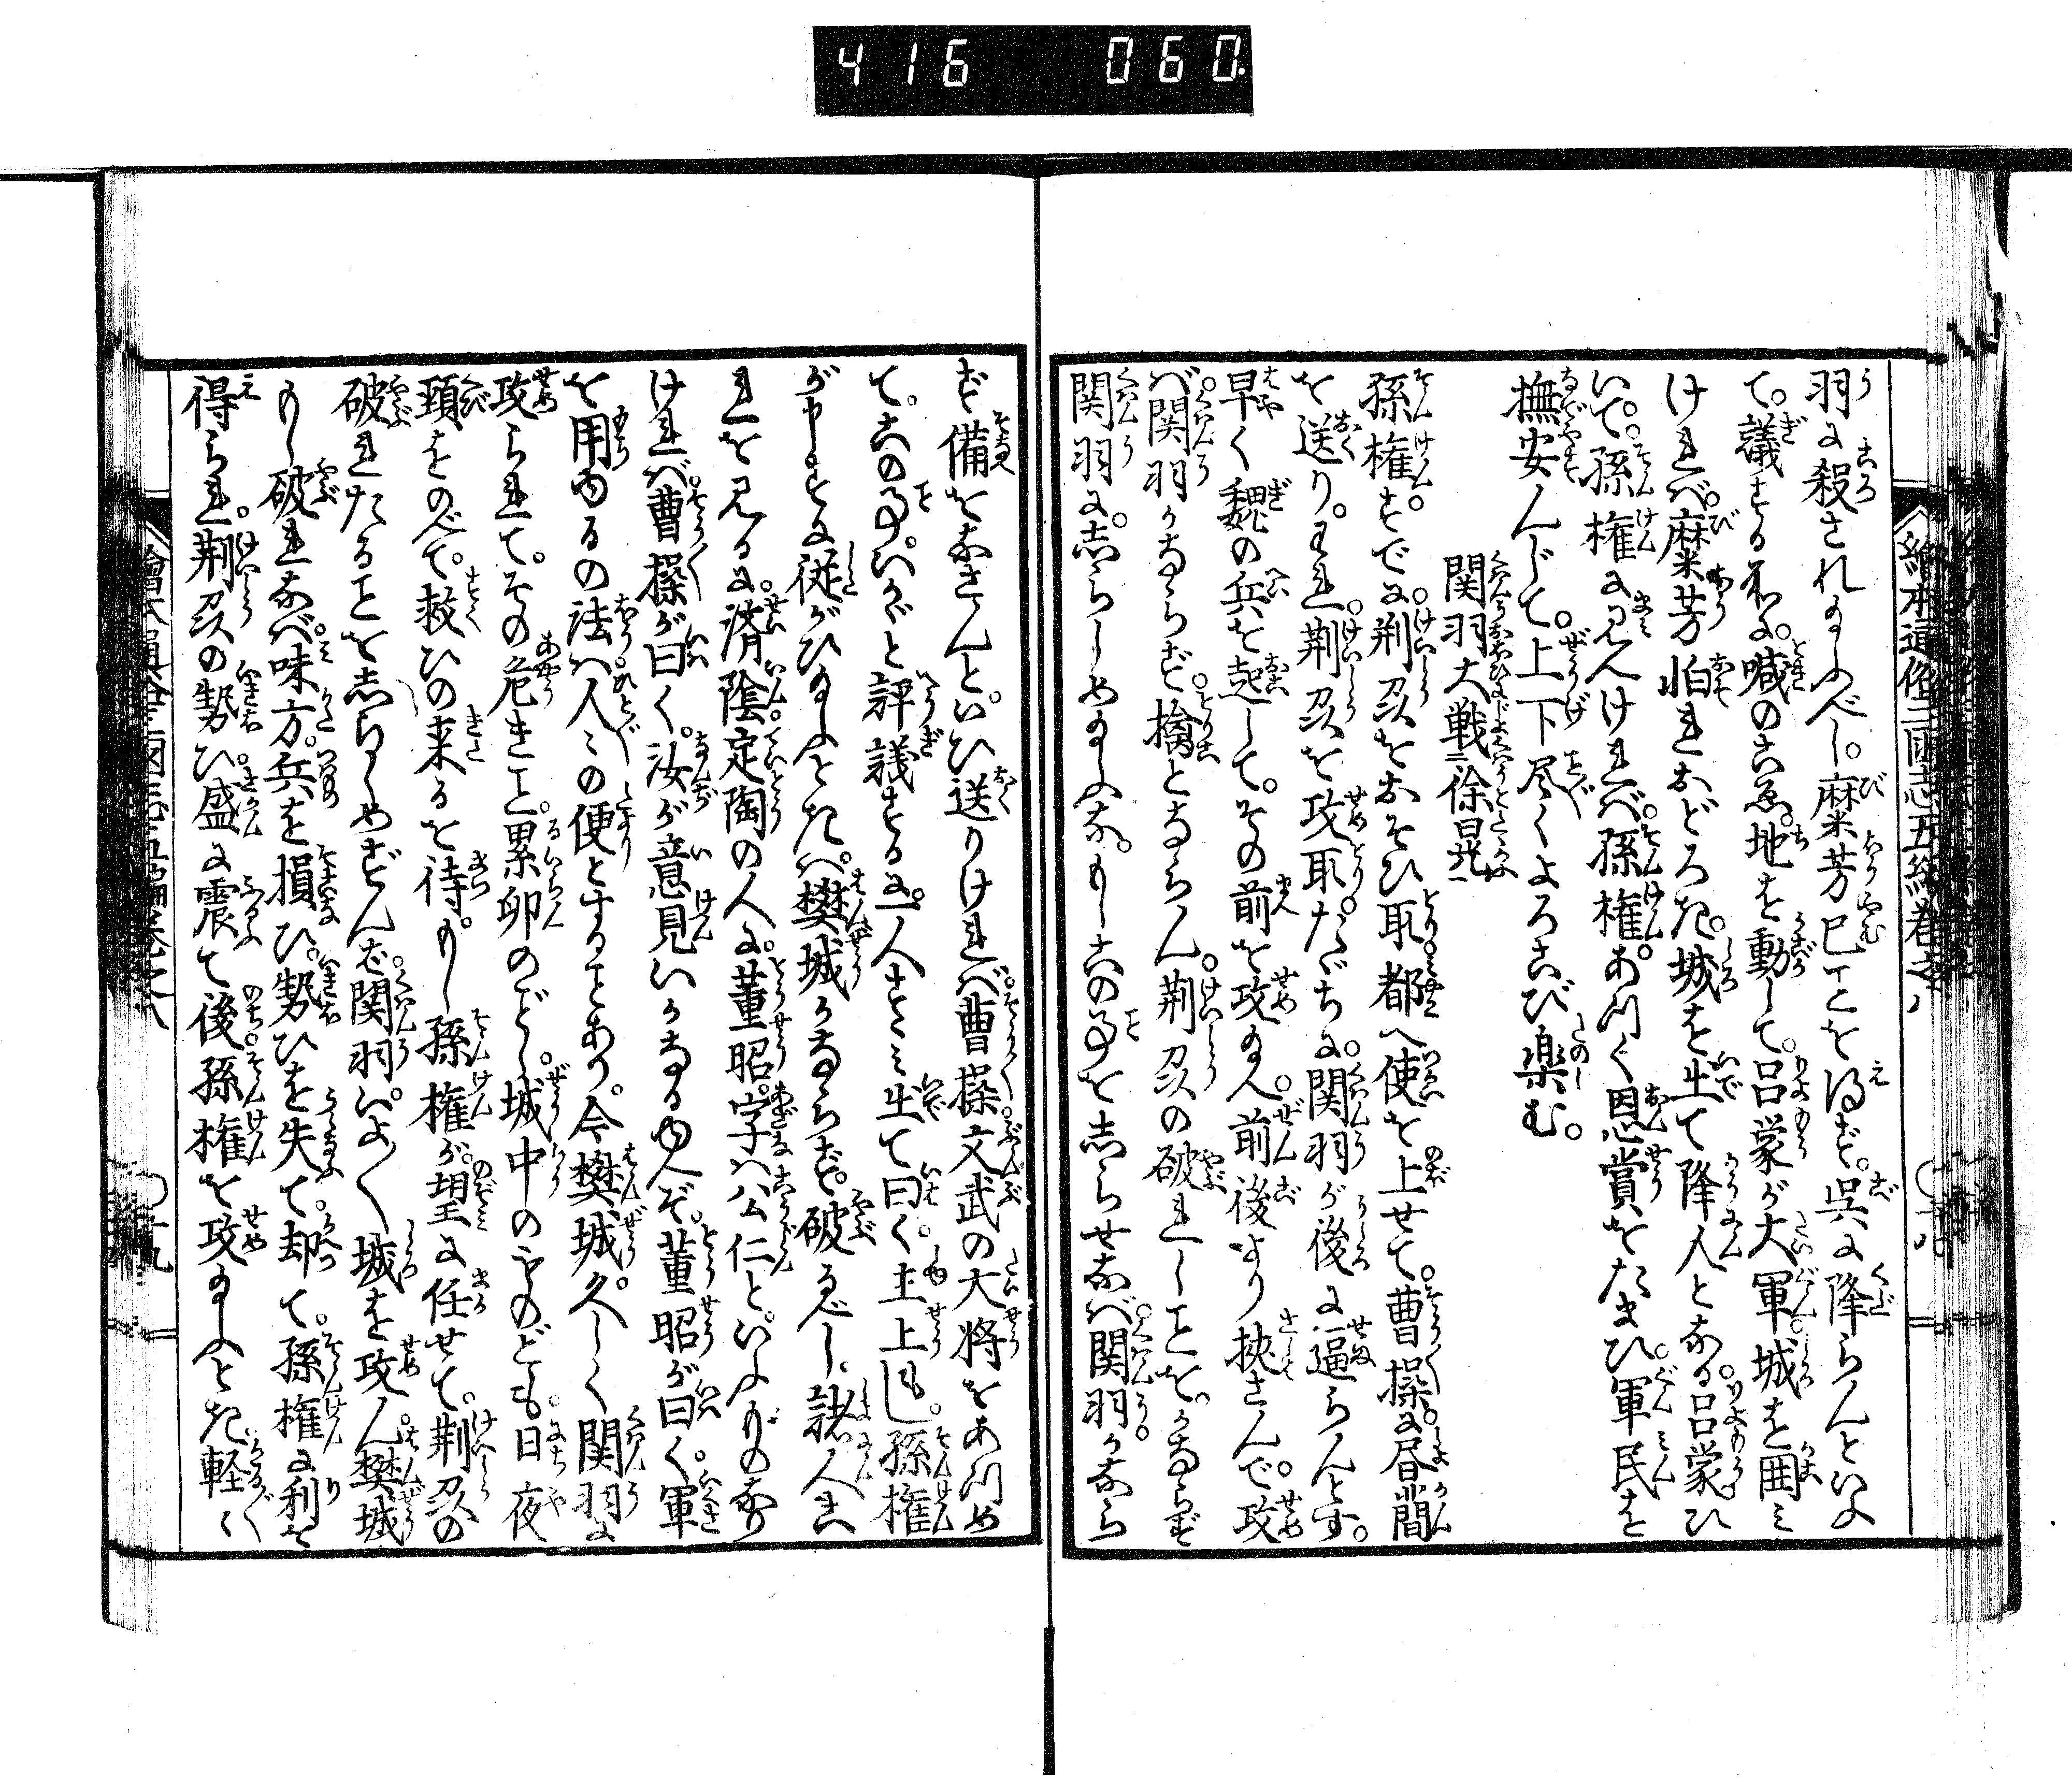 416 060
繪本通俗三國志五編巻之八
羽に殺されたまふべし。麻芳已ことを得ず。呉に降らんといふ
て。議する処に。喊のこゑ。地を動して。呂蒙が大軍。城を囲み
ければ。麻芳怕れおどろき。城を出て降人となる。呂蒙ひ
いて。孫権に見えければ。孫権。あつく恩賞をたまひ。軍民を
撫安んじて。上下尽くよろこび楽む。
関羽大戦徐晃
孫権。すでに。荊州をおそひ取。都へ使を上せて。曹操に書簡
を送り。われ。荊州を攻取。たゞちに。関羽が後に逼らんとす。
早く魏の兵を起して。その前を攻たまへ。前後より挟さんで。攻
ば。関羽かならず。擒とならん。荊州の破れしことを。かならず
関羽に。志らしめたまふな。もしこの事を志らせなば。関羽かなら
ず備をなさんと。いひ送りければ。曹操文武の大将をあつめ
て。この事。いかゞと評議するに。一人すゝみ出て曰く。主上もし。孫権
が申すに従がひたまふときは。樊城かならず。破るべし。諸人こ
れを見るに。済陰定陶の人に。董昭。字は公仁と。いふものなり
ければ。曹操が曰く。汝が意見いかなるゆへぞ。董昭が曰く。軍
を用ゆるの法は。人〻の便とすることあり。今樊城。久しく関羽に
攻られて。その危きこと。累卵のごとし。城中のものども。日夜
頸をのべて。救ひの来るを待。もし孫権が。望に任せて。荊州の
破れたることを志らしめずんば。関羽。いよ〱城を攻ん。樊城
もし破れなば。味方。兵を損ひ。勢ひを失て。却て。孫権に利を
得られ。荊州の勢ひ。盛に震て後。孫権を攻たまふとき。軽〻